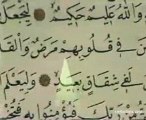 وَاللَّهُ عَلِيمٌ حَكِيمٌ لِيَجْعَلَ
فِي قُلُوبِهِمْ مَرَضٌ وَالْقَا
لَفِي شِقَاقٍ بَعِيدٍ وَلِيَعْلَمَ
رَبِّكَ فَيُؤْمِنُوا بِهِ